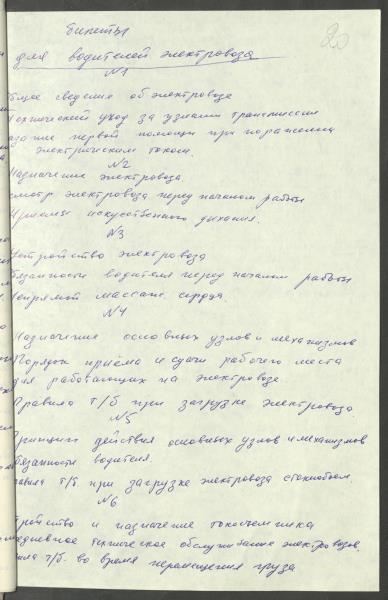 20
билеты
для водителей электровоза
№1
бщие сведения об электровозе
Технический уход за узлами трансмиссии
азание первой помощи при поражении
электрическим током.
№2
Назначение электровоза.
смотр электровоза перед началом работы
Приемы искуственного дыхания.
№3
Устройство электровоза
бязанности водителя перед началом работы
Непрямой массаж сердца.
№4
Назначение основных узлов и механизмов
Порядок приема и сдачи рабочего места
для работающих на электровозе
Правила т/б при загрузке электровоза
№5
Принцип действия основных узлов и механизмов
бязанности водителя.
равила т/б. при загрузке электровоза стеклобоем.
№6
тройство и назначение токосъемника
жедневное техническое обслуживание электровозов.
вила т/б. во время перемещения груза